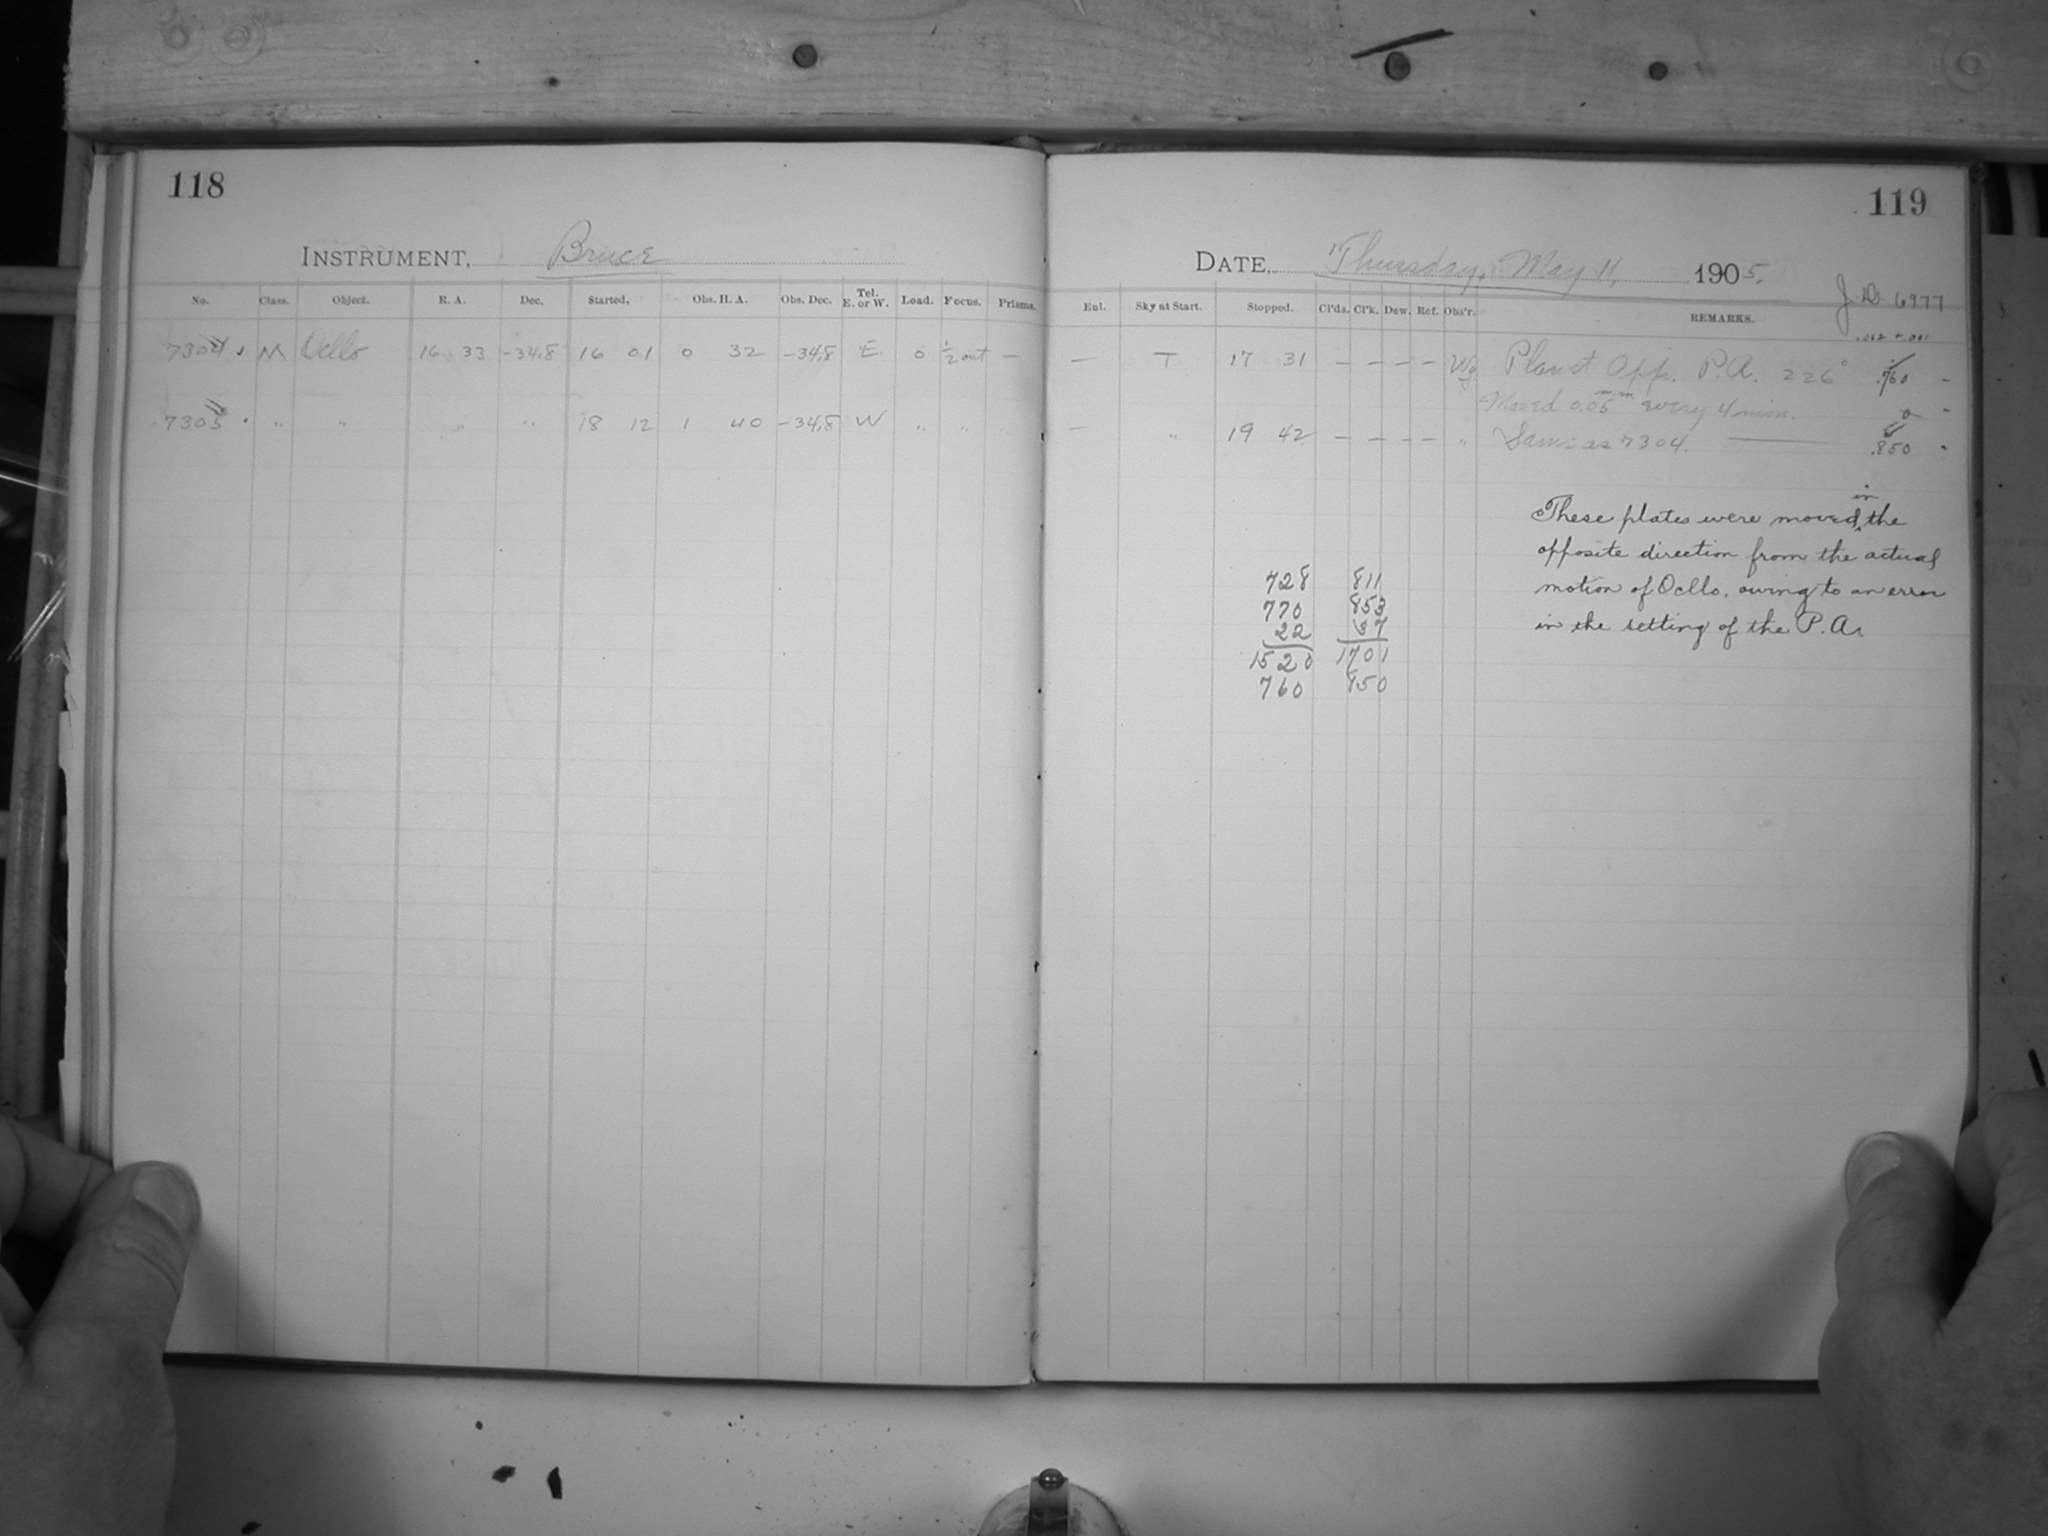 118
INSTRUMENT, Bruce
No. Class. Object. R. A. Dec. Started, Obs. H. A. Obs. Dec. Tel. E. or W. Load. Focus. Prisms.
7304 M Ocllo 16 33 -34.8 16 01 0 32 -34.8 E 0 1/2 out —
7305 " " " " 18 12 1 40 -34.8 W " "
119
DATE, Thursday, May 11, 1905.
J.D. 6977
Enl. Sky at Start. Stopped. Cl'ds. Cl'k. Dew. Ref. Obs'r. REMARKS.
.062 + .001
— T 17 31 — — — — Wg Planet App. P.A. 226° .760
Moved 0.05 m.m. every 4 min.
— " 19 42 — — — — " Same as 7304. .850
These plates were moved in the
opposite direction from the actual
motion of Ocllo, owing to an error
in the setting of the P.A.
728 811
770 853
22 37
1520 1701
760 850